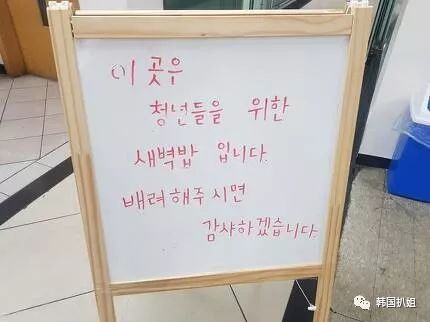 이 곳은
청년들을 위한
새벽밥 입니다.
배려해주시면
감사하겠습니다.
韩国扒姐